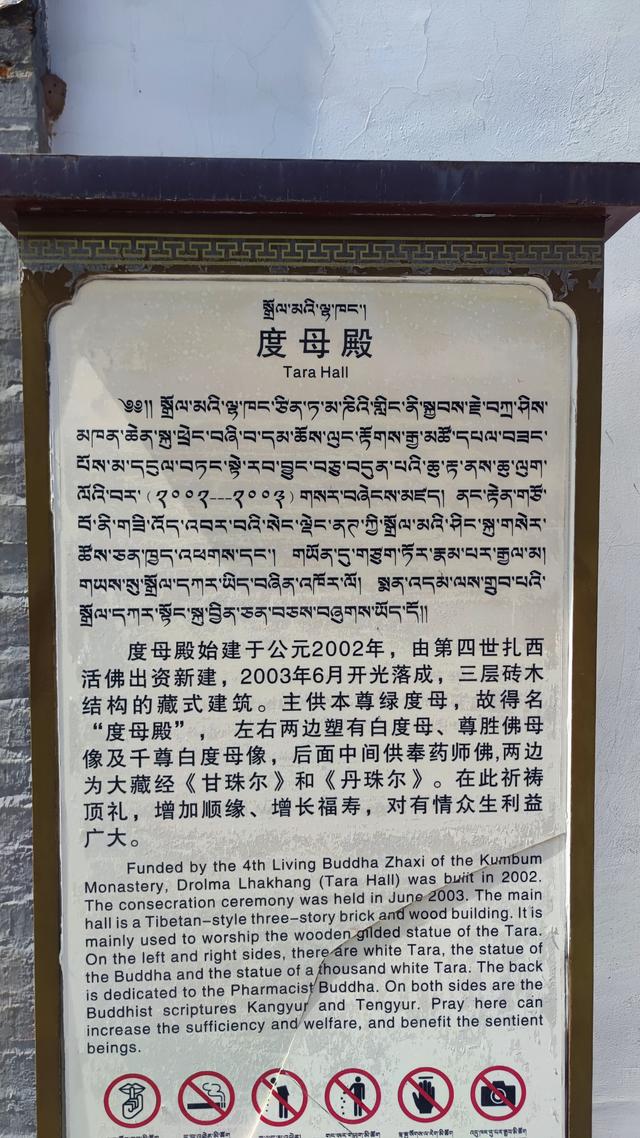 སྒྲོལ་མའི་ལྷ་ཁང་།
度母殿
Tara Hall
༄༅།། སྒྲོལ་མའི་ལྷ་ཁང་ཙིན་ཏ་མ་ཎིའི་གླིང་ནི་སྐྱབས་རྗེ་བཀྲ་ཤིས་
མཁན་ཆེན་སྐུ་ཕྲེང་བཞི་བ་དམ་ཆོས་ལུང་རྟོགས་རྒྱ་མཚོ་དཔལ་བཟང་
པོས་མ་དངུལ་བཏང་སྟེ་རབ་བྱུང་བཅུ་བདུན་པའི་ཆུ་རྟ་ནས་ཆུ་ལུག་
ལོའི་བར་(༢༠༠༢---༢༠༠༣)གསར་བཞེངས་མཛད། ནང་རྟེན་གཙོ་
བོ་ནི་གཟི་འོད་འབར་བའི་སེང་ལྡེང་ནགས་ཀྱི་སྒྲོལ་མའི་ཤིང་སྐུ་གསེར་
ཚོས་ཅན་ཁྱད་འཕགས་དང་། གཡོན་དུ་གཙུག་ཏོར་རྣམ་པར་རྒྱལ་མ།
གཡས་སུ་སྒྲོལ་དཀར་ཡིད་བཞིན་འཁོར་ལོ། སྨན་འདམ་ལས་གྲུབ་པའི་
སྒྲོལ་དཀར་སྟོང་སྐུ་བྱིན་ཅན་བཅས་བཞུགས་ཡོད་དོ།།
度母殿始建于公元2002年，由第四世扎西
活佛出资新建，2003年6月开光落成，三层砖木
结构的藏式建筑。主供本尊绿度母，故得名
“度母殿”， 左右两边塑有白度母、尊胜佛母
像及千尊白度母像，后面中间供奉药师佛,两边
为大藏经《甘珠尔》和《丹珠尔》。在此祈祷
顶礼，增加顺缘、增长福寿，对有情众生利益
广大。
Funded by the 4th Living Buddha Zhaxi of the Kumbum
Monastery, Drolma Lhakhang (Tara Hall) was built in 2002.
The consecration ceremony was held in June 2003. The main
hall is a Tibetan-style three-story brick and wood building. It is
mainly used to worship the wooden gilded statue of the Tara.
On the left and right sides, there are white Tara, the statue of
the Buddha and the statue of a thousand white Tara. The back
is dedicated to the Pharmacist Buddha. On both sides are the
Buddhist scriptures Kangyur and Tengyur. Pray here can
increase the sufficiency and welfare, and benefit the sentient
beings.